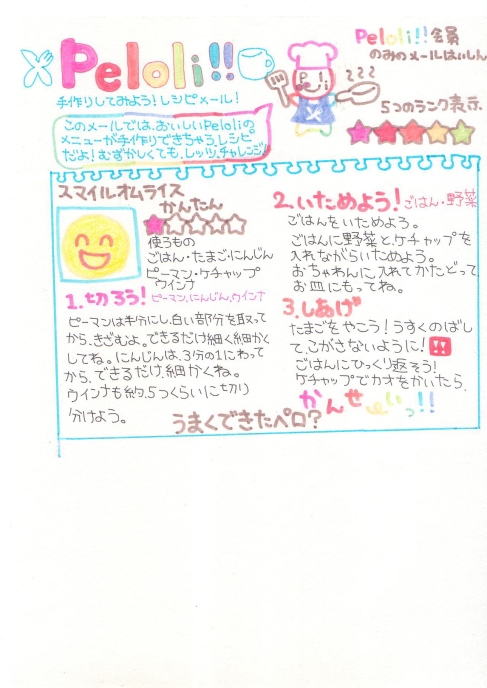 Peloli!!
手作りしてみよう!レシピメール!
Peloli!!会員
のみのメールはいしん
5つのランク表示
このメールでは、おいしいPeloliの
メニューが手作りできちゃうレシピ
だよ!むずかしくても、レッツ、チャレンジ!
スマイルオムライス
かんたん
使うもの
ごはん・たまご・にんじん
ピーマン・ケチャップ
ウインナ
1.切ろう!ピーマン,にんじん,ウインナ
ピーマンは半分にし、白い部分を取って
から、きざむよ。できるだけ細く細かく
してね。にんじんは、3分の1にわって
から、できるだけ、細かくね。
ウインナも約、5つくらいに切り
分けよう。
2.いためよう!ごはん・野菜
ごはんをいためよう。
ごはんに野菜と、ケチャップを
入れながらいためよう。
おちゃわんに、入れてかたどって
お皿にもってね。
3.しあげ
たまごをやこう!うすくのばし
て、こがさないように!!!
ごはんにひっくり返そう!
ケチャップでカオをかいたら、
かんせぇいっ!!
うまくできたペロ?